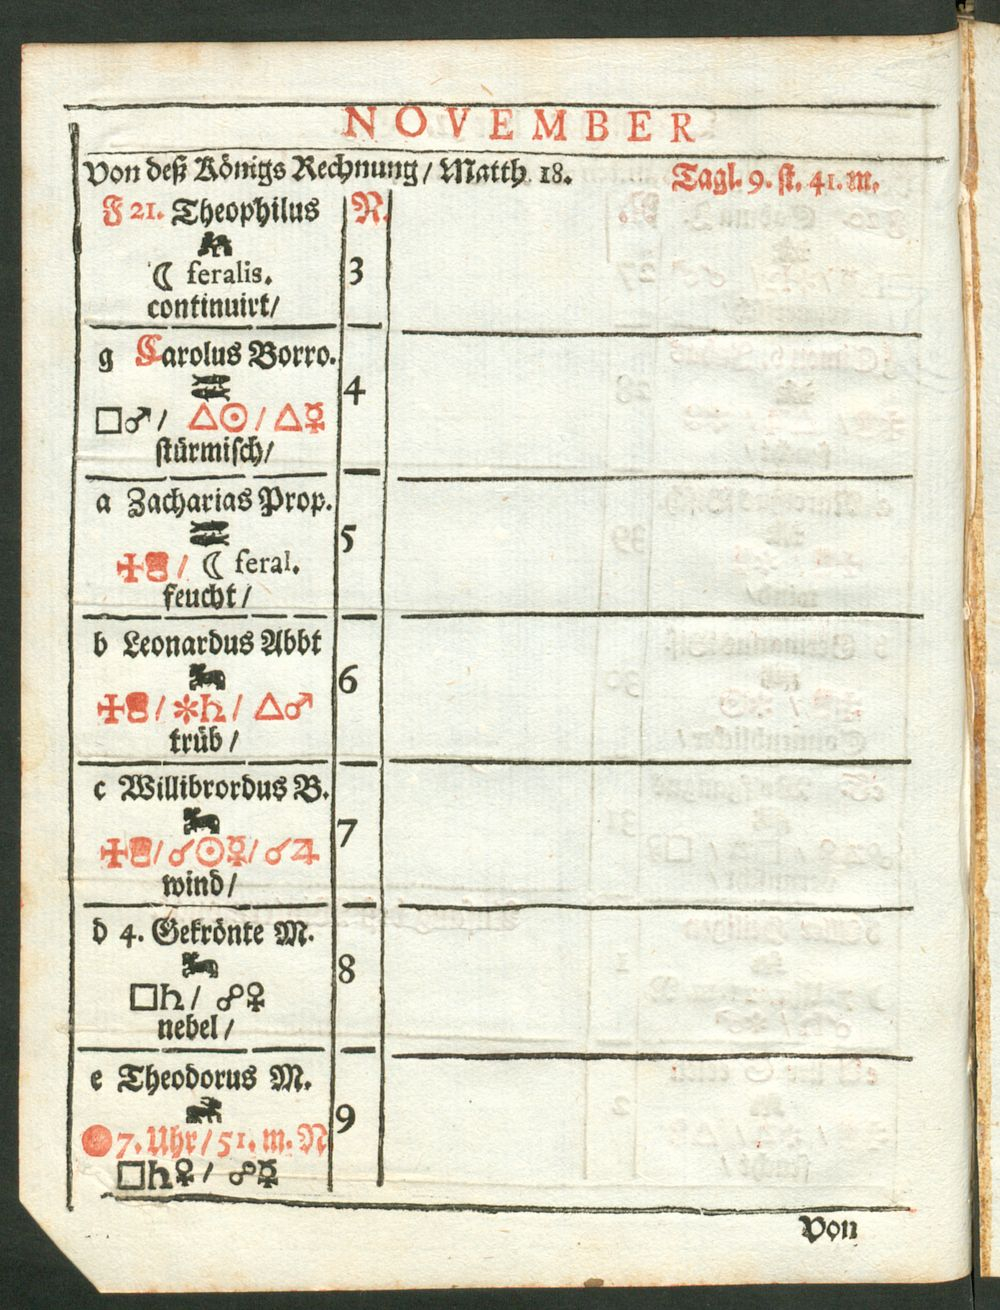 NOVEMBER
Von deß Königs Rechnung / Matth 18. Tagl. 9. st. 41. m.
F 21. Theophilus N.
☾ feralis. 3
continuirt /
g Carolus Borro.
□♂ / △☉ / △☿ 4
stürmisch /
a Zacharias Prop.
/ ☾ feral. 5
feucht /
b Leonardus Abbt
/ ✻♄ / △♂ 6
trüb /
c Willibrordus B.
/ ☌☉☿ / ☌♃ 7
wind /
d 4. Gekrönte M.
□♄ / ☍♀ 8
nebel /
e Theodorus M.
7. Uhr / 51. m. N 9
□♄♀ / ☍☿
Von